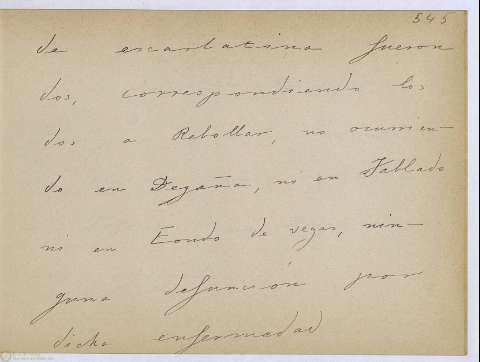 545
de escarlatina fueron
dos, correspondiendo los
dos a Rebollar, no ocurrien-
do en Degaña, ni en Tablado
ni en Fondo de vegas, nin-
guna defunción por
dicha enfermedad